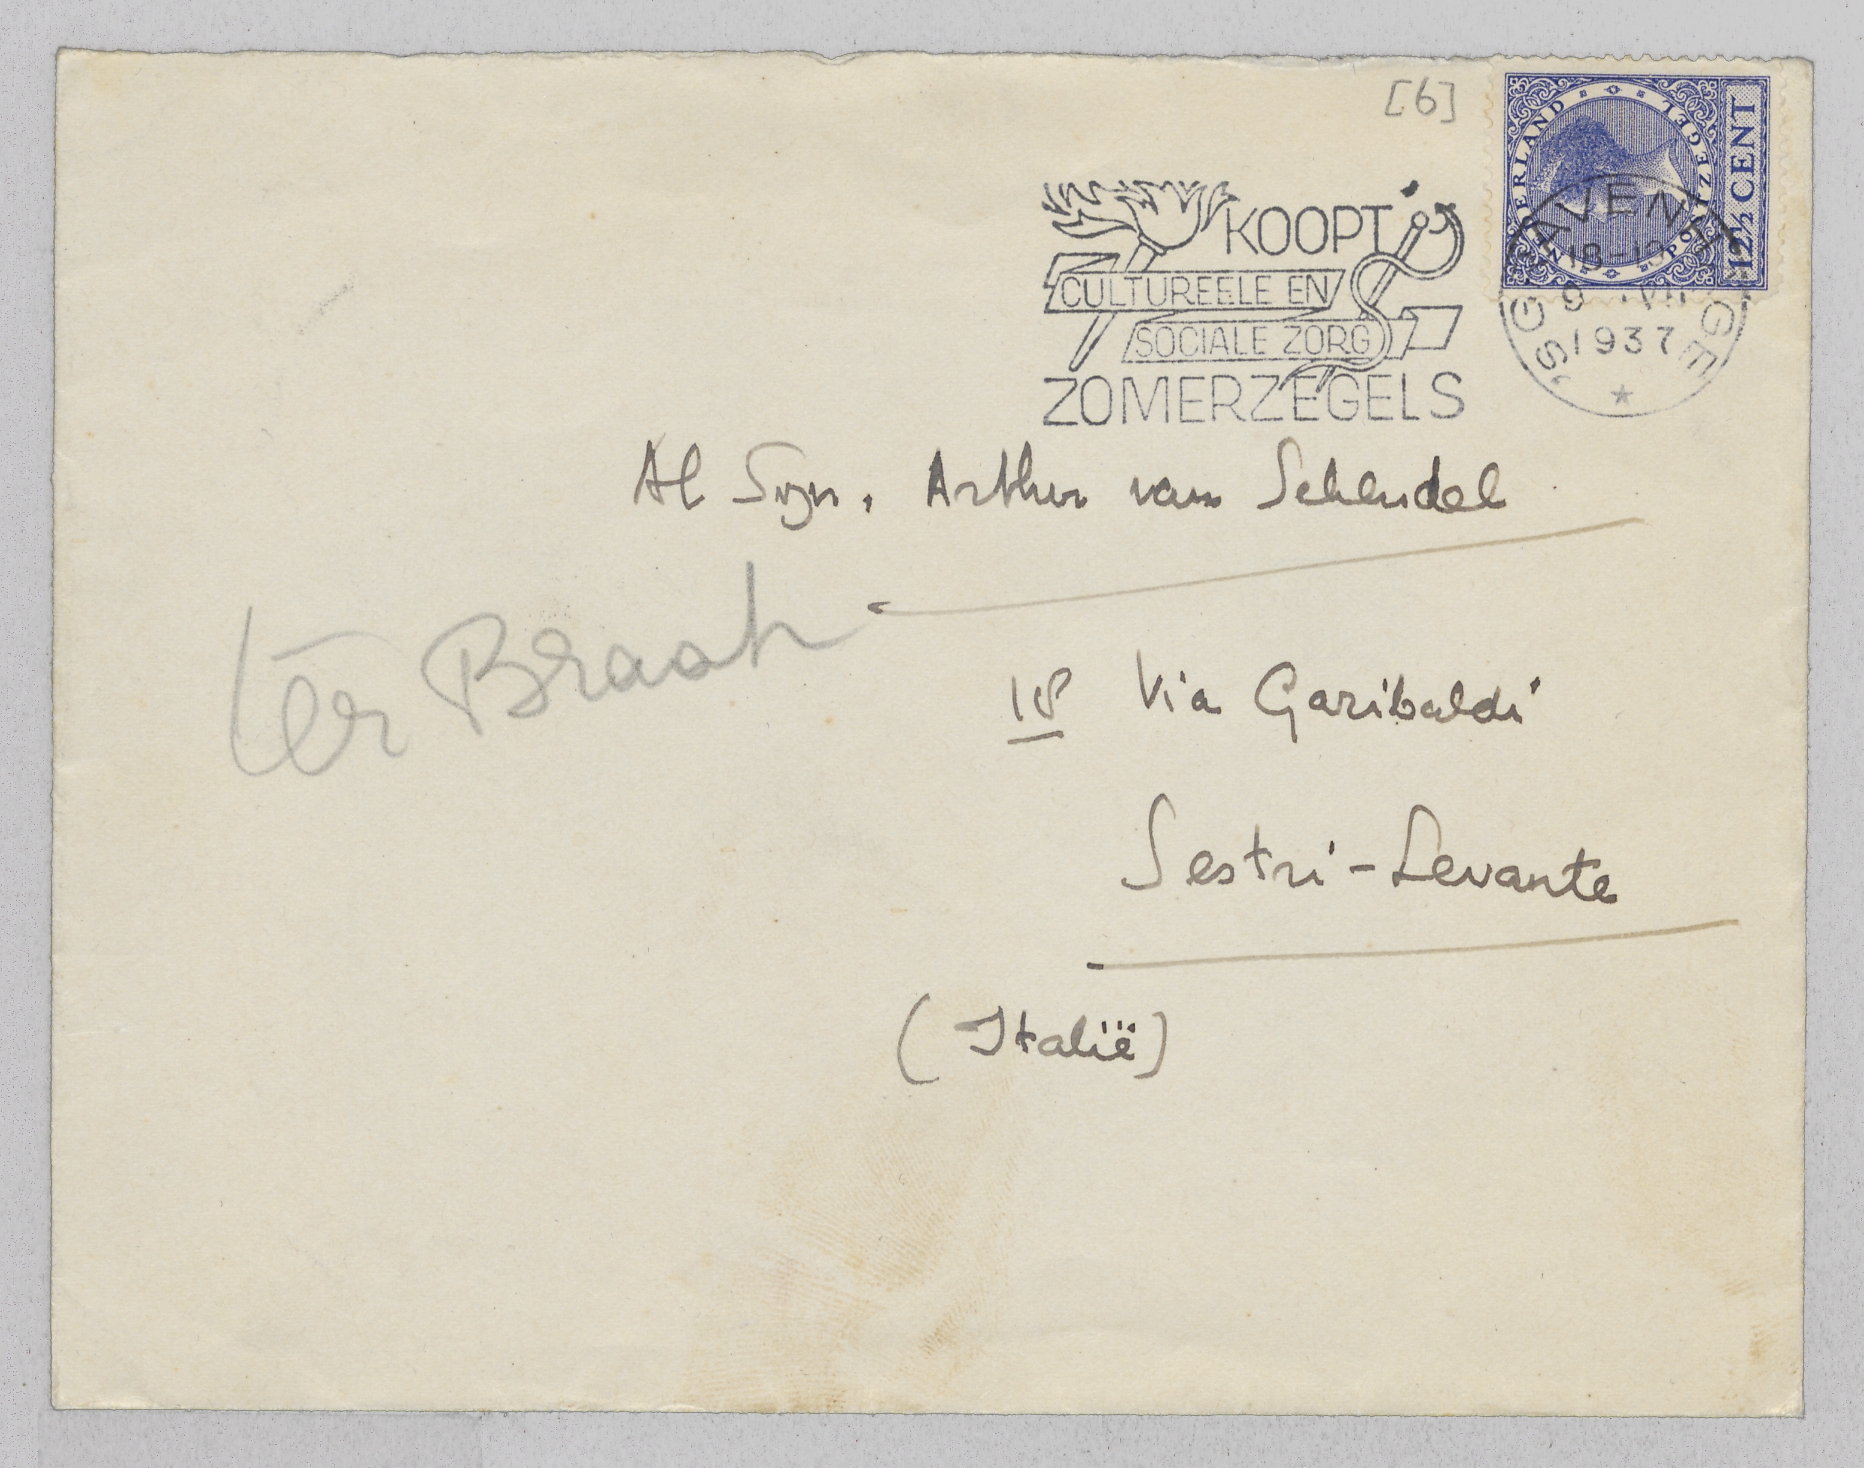 [6]
NEDERLAND POSTZEGEL
12½ CENT
KOOPT
CULTUREELE EN
SOCIALE ZORG
ZOMERZEGELS
'S-GRAVENHAGE
18-19
9 .VII
1937
Al Sign. Arthur van Schendel
ter Braak
18 Via Garibaldi
Sestri-Levante
(Italië)